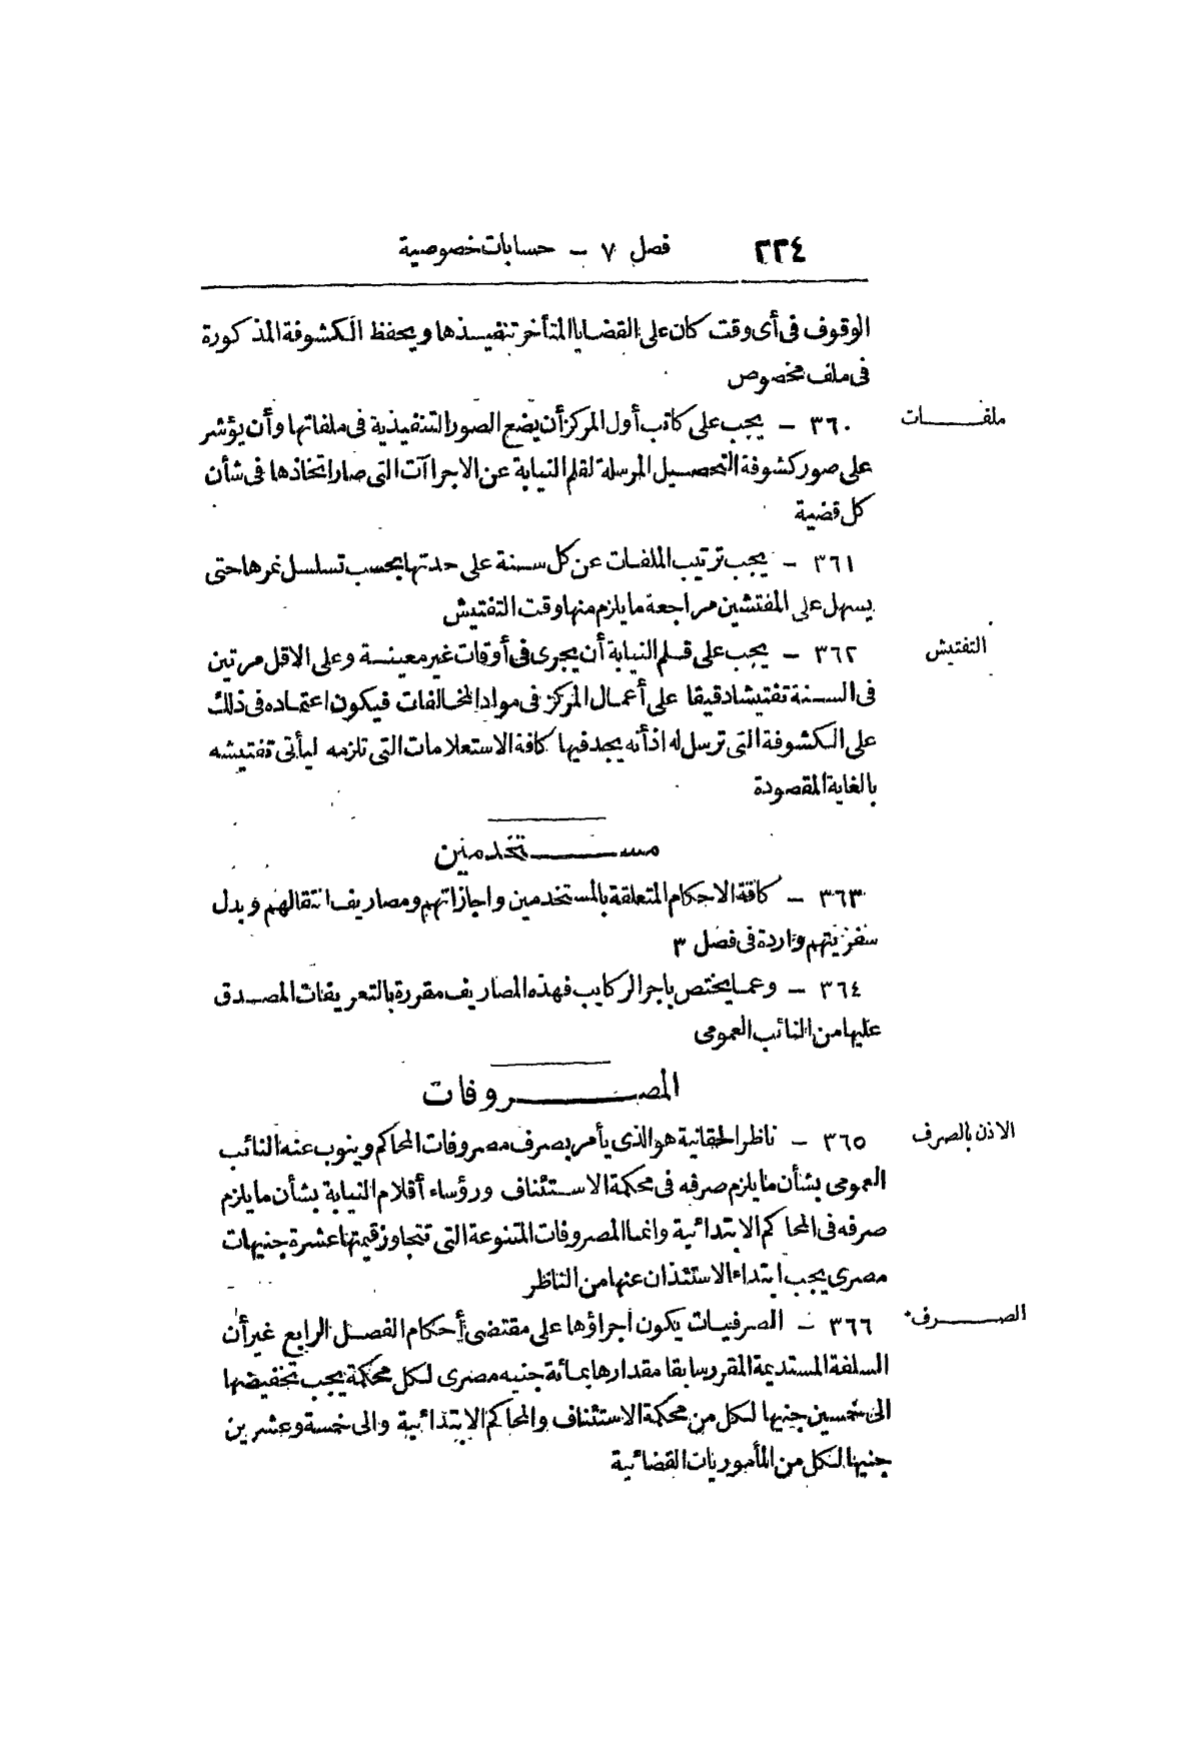 ٢٣٤ فصل ٧ – حسابات خصوصية
الوقوف فى أى وقت كان على القضايا المتأخر تنفيذها ويحفظ الكشوفة المذكورة
فى ملف مخصوص
ملفات
٣٦٠ – يجب على كاتب أول المركز أن يضع الصور التنفيذية فى ملفاتها وأن يؤشر
على صور كشوفة التحصيل المرسلة لقلم النيابة عن الاجراآت التى صار اتخاذها فى شأن
كل قضية
٣٦١ – يجب ترتيب الملفات عن كل سنة على حدتها بحسب تسلسل نمرها حتى
يسهل على المفتشين مراجعة ما يلزم منها وقت التفتيش
التفتيش
٣٦٢ – يجب على قلم النيابة أن يجرى فى أوقات غير معينة وعلى الاقل مرتين
فى السنة تفتيشا دقيقا على أعمال المركز فى مواد المخالفات فيكون اعتماده فى ذلك
على الكشوفة التى ترسل له اذ أنه يجد فيها كافة الاستعلامات التى تلزمه ليأتى تفتيشه
بالغاية المقصودة
مستخدمين
٣٦٣ – كافة الاحكام المتعلقة بالمستخدمين واجازاتهم ومصاريف انتقالهم وبدل
سفريتهم واردة فى فصل ٣
٣٦٤ – وعما يختص باجر الركايب فهذه المصاريف مقررة بالتعريفات المصدق
عليها من النائب العمومى
المصروفات
الاذن بالصرف
٣٦٥ – ناظر الحقانية هو الذى يأمر بصرف مصروفات المحاكم وينوب عنه النائب
العمومى بشأن ما يلزم صرفه فى محكمة الاستئناف ورؤساء أقلام النيابة بشأن ما يلزم
صرفه فى المحاكم الابتدائية وانما المصروفات المتنوعة التى تتجاوز قيمتها عشرة جنيهات
مصرى يجب ابتداء الاستئذان عنها من الناظر
الصرف
٣٦٦ – الصرفيات يكون اجراؤها على مقتضى أحكام الفصل الرابع غير أن
السلفة المستديمة المقرر سابقا مقدارها بمائة جنيه مصرى لكل محكمة يجب تخفيضها
الى خمسين جنيها لكل من محكمة الاستئناف والمحاكم الابتدائية والى خمسة وعشرين
جنيها لكل من المأموريات القضائية